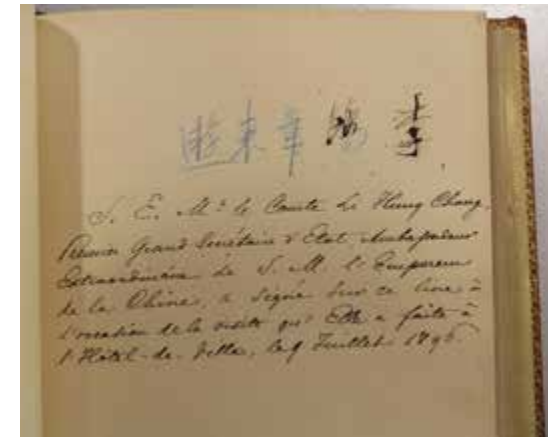 李鴻章東遊
S. E. Mr le Comte Li Hung Chang,
Premier Grand Secrétaire d'Etat Ambassadeur
Extraordinaire de S. M. l'Empereur
de la Chine, a signé sur ce livre à
l'occasion de la visite qu'Elle a faite à
l'Hôtel-de-Ville, le 9 Juillet 1896